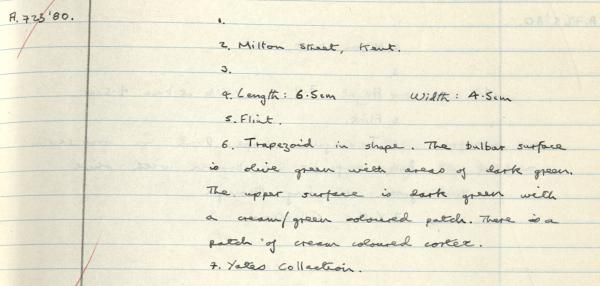 A.723'80.
1.
2. Milton Street, Kent.
3.
4. Length: 6.5cm Width: 4.5cm
5. Flint.
6. Trapezoid in shape. The bulbar surface
is olive green with areas of dark green.
The upper surface is dark green with
a cream/green coloured patch. There is a
patch of cream coloured cortex.
7. Yates Collection.